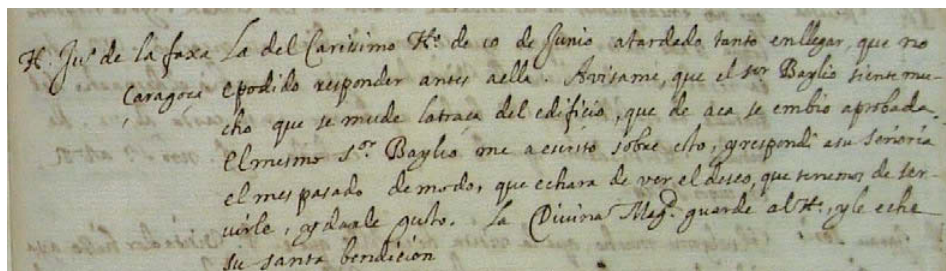 H. Ju.º de la faxa La del Carissimo Hº. de 10 de Junio atardado tanto enllegar, que no
Caragoça epodido responder antes aella. Avisame, que el sor Baylio siente mu-
cho que se mude latraça del edificio, que de aca se embio aprobada.
El mesmo s.or Baylio me aescrito sobre esto, yrespondi asu señoria
el mes pasado de modo, que echara de ver el deseo, que tenemos de ser-
uirle, y darle gusto. La Divina Mag.d guarde al Hº. yle eche
su santa bendicion